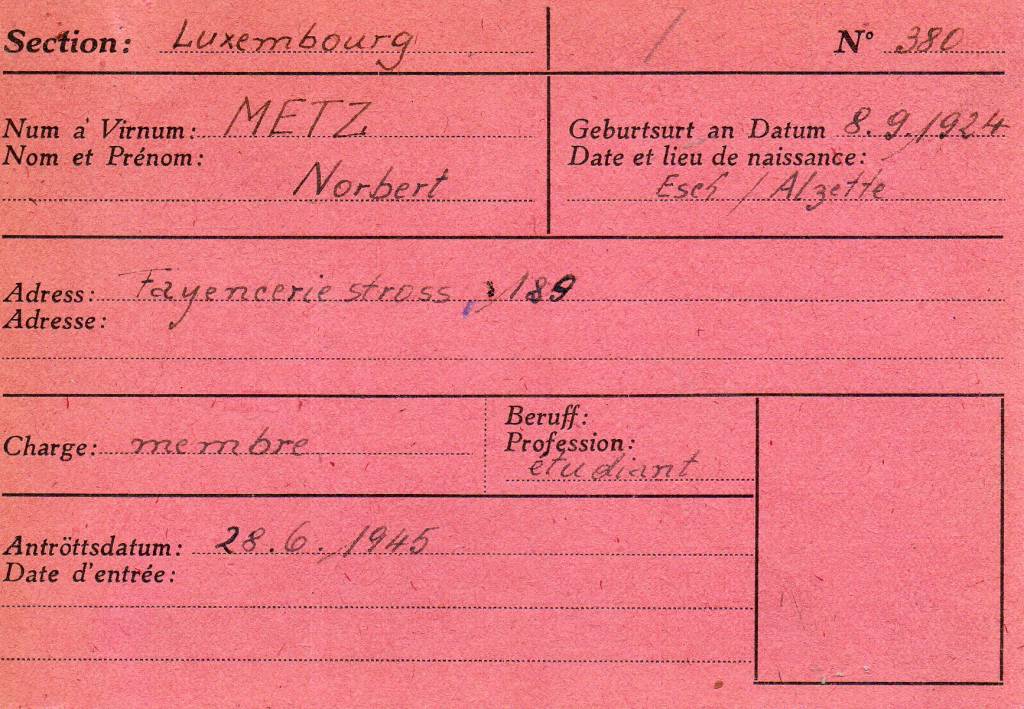 Section: Luxembourg N° 380
Num a' Virnum: METZ
Nom et Prénom:
Norbert
Geburtsurt an Datum 8.9.1924
Date et lieu de naissance:
Esch / Alzette
Adress: Fayencerie stross, 189
Adresse:
Charge: membre
Beruff:
Profession:
étudiant
Antröttsdatum: 28.6.1945
Date d'entrée: